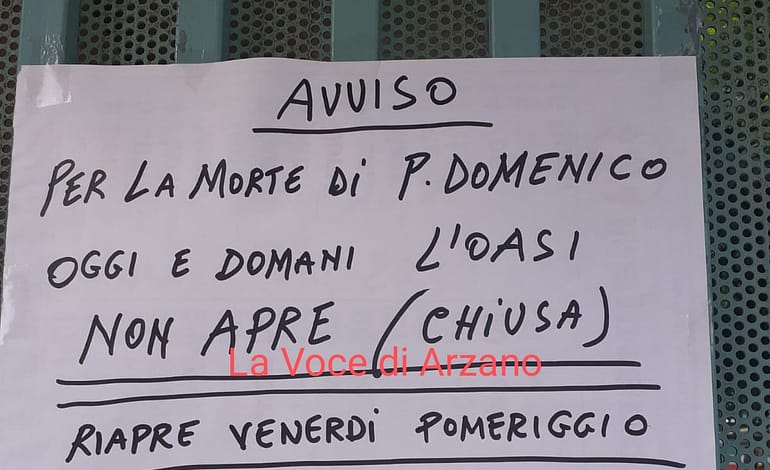 AVVISO
PER LA MORTE Di P. DOMENICO
OGGI E DOMANI L'OASI
NON APRE (CHiUSA)
La Voce di Arzano
RIAPRE VENERDi POMERIGGIO